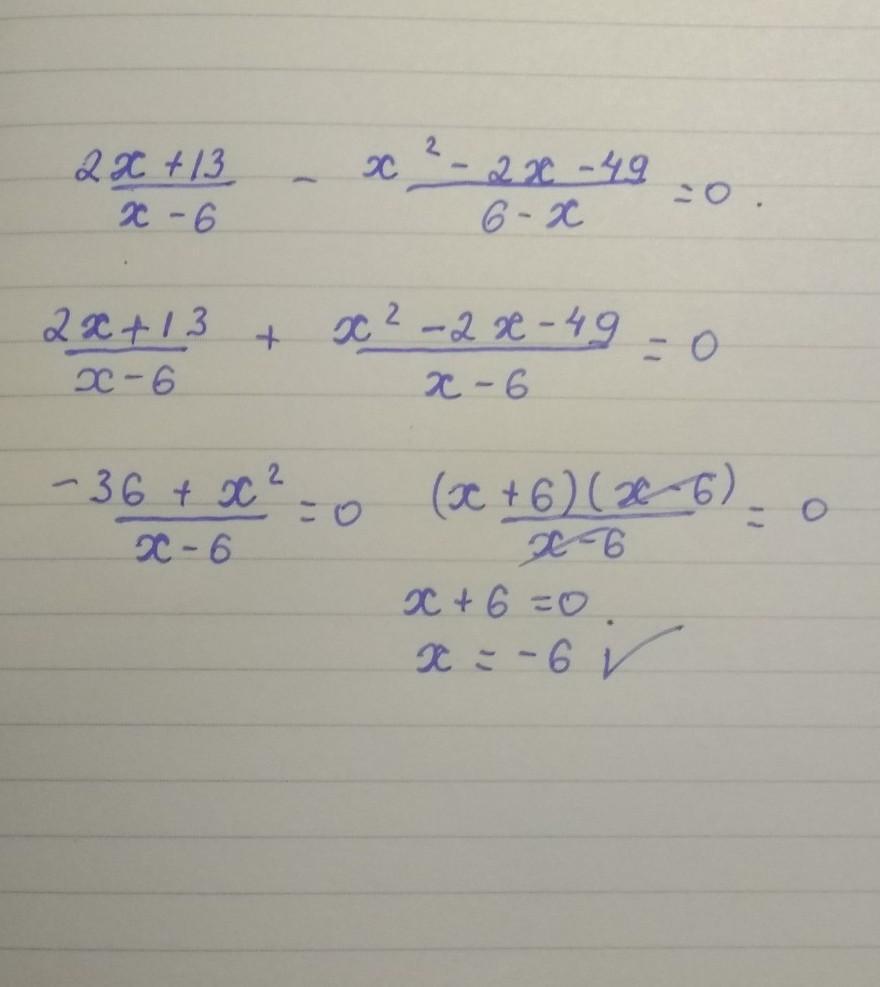 (2x+13)/(x-6) - (x²-2x-49)/(6-x) =0.
(2x+13)/(x-6) + (x²-2x-49)/(x-6) =0
(-36+x²)/(x-6) =0 ((x+6)(x-6))/(x-6) = 0
x+6=0.
x=-6 ✓